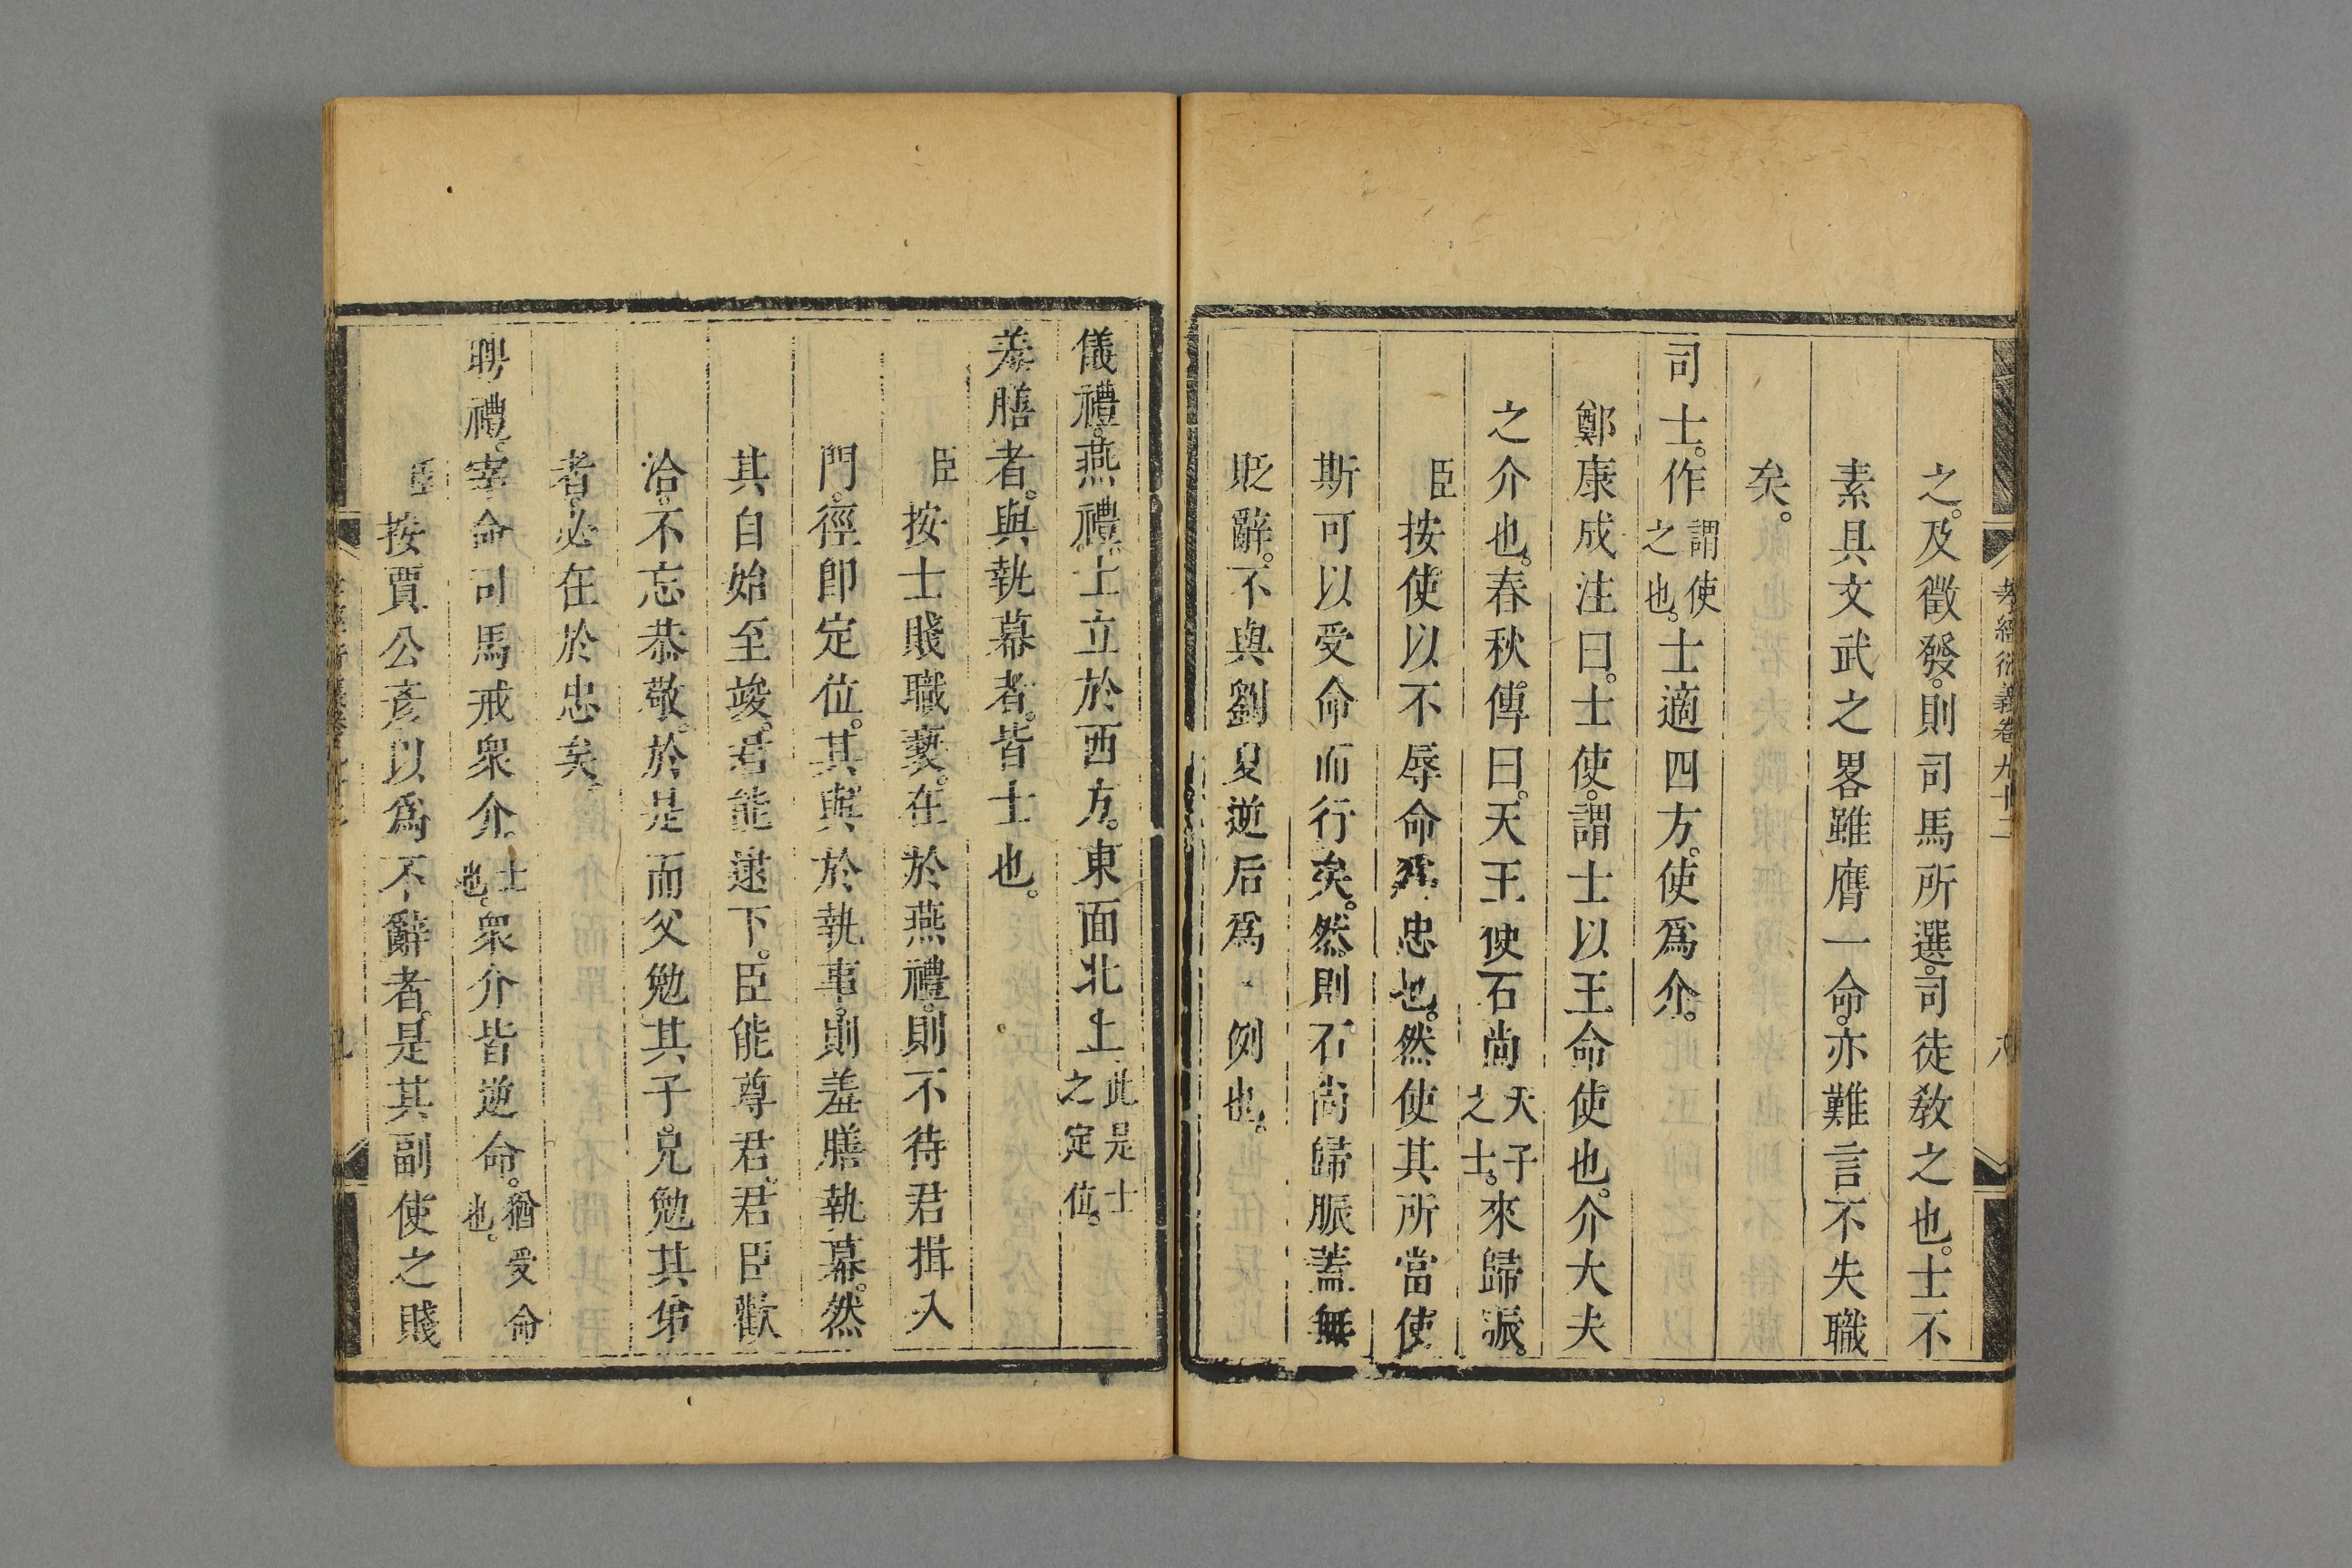 孝經衍義卷九十二
之。及徵發。則司馬所選。司徒敎之也。士不
素具文武之畧。雖膺一命。亦難言不失職
矣。
司士。作謂使之也。士適四方。使爲介。
鄭康成注曰。士使。謂士以王命使也。介大夫
之介也。春秋傳曰。天王使石尚天子之士。來歸脤。
臣按使以不辱命爲忠也。然使其所當使
斯可以受命而行矣。然則石尚歸脤蓋無
貶辭。不與劉夏逆后爲 例也。
儀禮。燕禮。士立於西方。東面北上此是士之定位。
羞膳者。與執幕者。皆士也。
臣按士賤職褻。在於燕禮。則不待君揖入
門。徑卽定位。其與於執事。則羞膳執幕。然
其自始至竣。君能逮下。臣能尊君。君臣歡
洽。不忘恭敬。於是而父勉其子。兄勉其弟
者。必在於忠矣。
聘禮。宰命司馬戒衆介士也。衆介皆逆命。猶受命也。
臣按賈公彥以爲不辭者。是其副使之賤